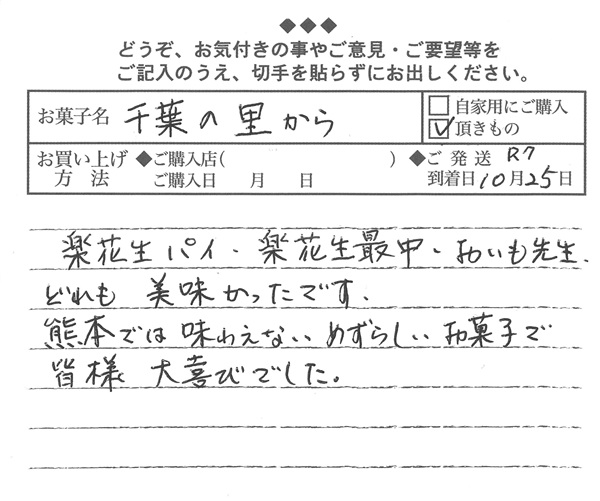 ◆◆◆
どうぞ、お気付きの事やご意見・ご要望等を
ご記入のうえ、切手を貼らずにお出しください。
お菓子名 千葉の里から
□自家用にご購入
☑頂きもの
お買い上げ方法
◆ご購入店( )
ご購入日 月 日
◆ご発送 R7
到着日10月25日
楽花生パイ・楽花生最中・おいも先生、
どれも 美味かったです、
熊本では味わえない、めずらしいお菓子で
皆様 大喜びでした。